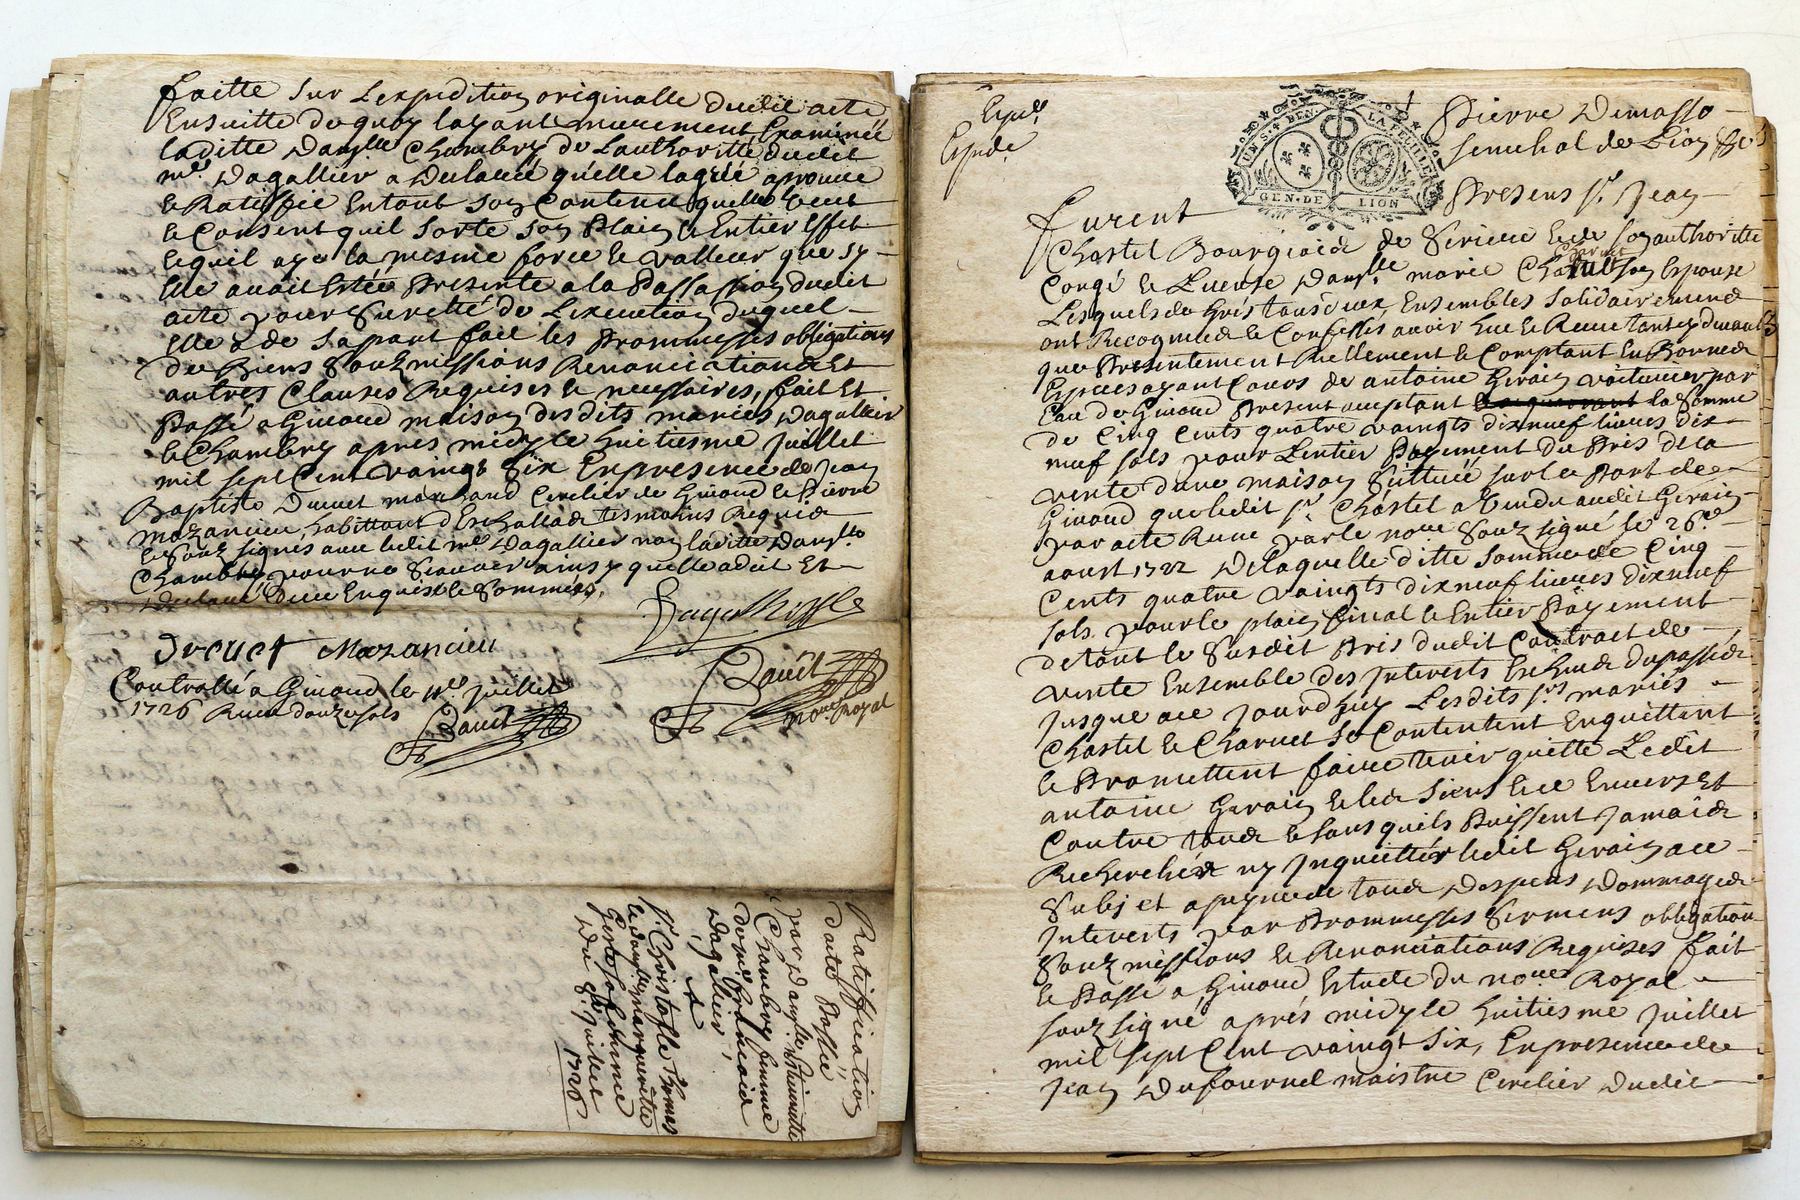 faitte Sur Lexpedition originalle dudit acte
Ensuitte de quoy layant meurement Examinée
laditte Damlle Chambry de Lauthoritté dudit
me Dagallier a Declaré quelle lagréé aprouue
le Ratiffie Entout Son Contenu quelle veut
le Consent quil Sorte Son Plain le Entier Effet
lequil aye la mesme force le valleur que Sy
Elle auoit Estée Presente a la Passassion dudit
acte pour Sureté de Lexecution duquel
Elle a de Sapart fait les Prommesses obligations
de Biens Soubmissions Renonciations Et
autres Clauses Requises le necessaires, fait Et
Passé a Giuord maison desdits mariés Dagallier
le Chambry apres midy le huitiesme Juillet
mil Sept Cent vaingt Six En presence de Jean
Baptiste Drevet marchand Cerclier de Giuord le Pierre
mazancieu habittant d'Eschallas tesmoins Requis
le Souz signés auec ledit me Dagallier non laditte Damlle
Chambry pour ne Scauoir ainsy quelle a dit Et
Declaré Deue Enquise le Sommée,
Drevet Mazancieu
Dauit
nore Royal
Controllé a Giuord le Juillet
1726 Receu douze sols
Dauit
Ratiffication
dacte Passée
par Damlle
Chambry femme
Dagallier,
A
Sr Christofle Thomas
le damlle margueritte
sa femme
Du 8e Juillet
1726
UN.S.4 DEN. LA FEUILLE
GEN. DE LION
Pierre Demasso
Senechal de Lion
Furent Presens Sr Jean
Chastel Bourgeois de le de son authoritté
Congé le License Damlle marie Charuet Son Espouse
Lesquels de Gré tous deux Ensembles Solidairement
ont Recogneu le Confessés auoir Eue le Receu tant cy deuant
que Presentement Réellement le Comptant En Bonnes
Especes ayant Cours de antoine Gerain Voiturier par
Eau de Giuord Present acceptant la Somme
de Cinq Cents quatre vaingts dixneuf liures dix
neuf sols pour Lentier Payement du Pris de la
vente dune maison Scittuée sur le Port de
Giuord que ledit Sr Chastel a Vendu audit Gerain
par acte Receu par le nore Souz signé le 26e
aoust 1722 De laquelle ditte Somme de Cinq
Cents quatre vaingts dixneuf liures dixneuf
sols pour le plain final le Entier Payement
de tout le Susdit Pris dudit Contract de
vente Ensemble des Interests Escheus du passé
Jusque a ce Jourdhuy Lesdits srs mariés
Chastel le Charuet Se Contentent En quittent
le Promettent faire tenir quitte Ledit
antoine Gerain le les Siens le ce Enuers Et
Contre tous le Sans quils Puissent Jamais
Rechercher ny Inquietter ledit Gerain a ce
Subjet a peyne de tous Despens Dommages
Interests par Prommesses Sermens obligation
Souzmissions le Renonciations Requises fait
le Passé a Giuord Estude du nore Royal
souz signé aprés midy le huitiesme Juillet
mil Sept Cent vaingt Six, En presence de
Jean Dufournel maistre Cerclier Dudit